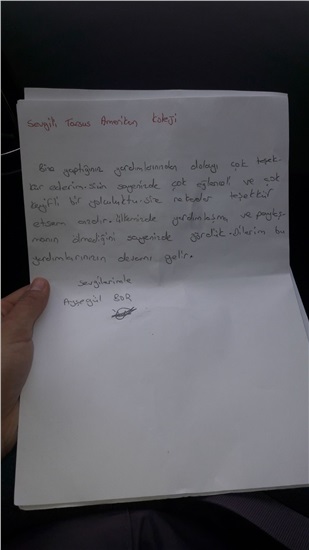 Sevgili Tarsus Amerikan Koleji
Bize yaptığınız yardımlarınızdan dolayı çok teşek-
kür ederim. Sizin sayenizde çok eğlenceli ve çok
keyifli bir yolculuktu. Size ne kadar teşekkür
etsem azdır. Ülkemizde yardımlaşma ve paylaş-
manın ölmediğini sayenizde gördük. Dilerim bu
yardımlarınızın devamı gelir.
Sevgilerimle
Ayşegül